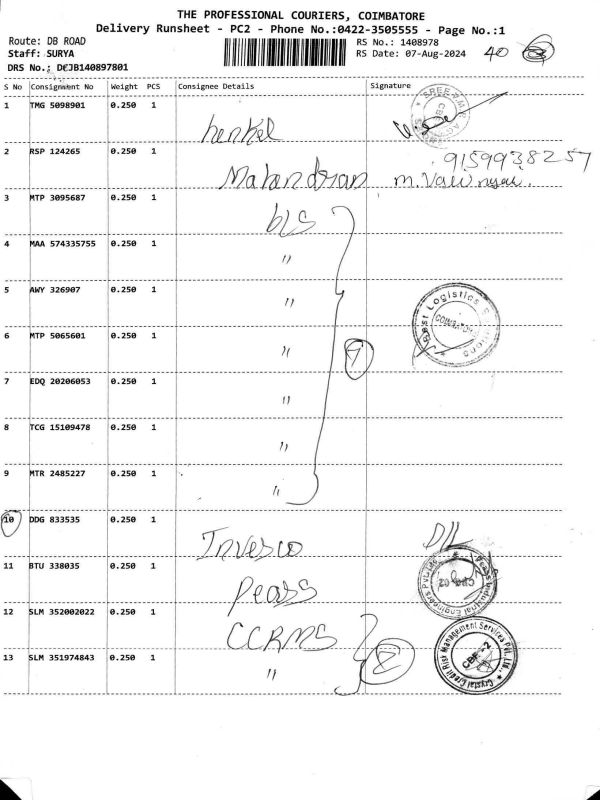 THE PROFESSIONAL COURIERS, COIMBATORE
Delivery Runsheet - PC2 - Phone No.:0422-3505555 - Page No.:1
Route: DB ROAD
RS No.: 1408978
Staff: SURYA
RS Date: 07-Aug-2024 40
DRS No.: DEJB140897801
S No Consignment No Weight PCS Consignee Details Signature
1 TMG 5098901 0.250 1 henkel
2 RSP 124265 0.250 1 9159938257
3 MTP 3095687 0.250 1 bls
4 MAA 574335755 0.250 1 "
5 AWY 326907 0.250 1 "
Best Logistics
COIMBATORE
6 MTP 5065601 0.250 1 "
7 EDQ 20206053 0.250 1 "
8 TCG 15109478 0.250 1 "
9 MTR 2485227 0.250 1 "
10 DDG 833535 0.250 1 Invesco
11 BTU 338035 0.250 1 Peass
Peass Industrial Engineers Pvt Ltd
12 SLM 352002022 0.250 1 CCRMS
Crystal Credit Risk Management Services Pvt. Ltd.,
CBE - 2
13 SLM 351974843 0.250 1 "